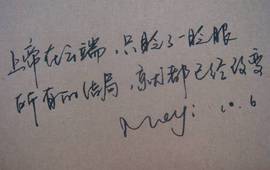 上帝在云端，只眨了一眨眼
所有的结局，高潮都已经改变
10.6